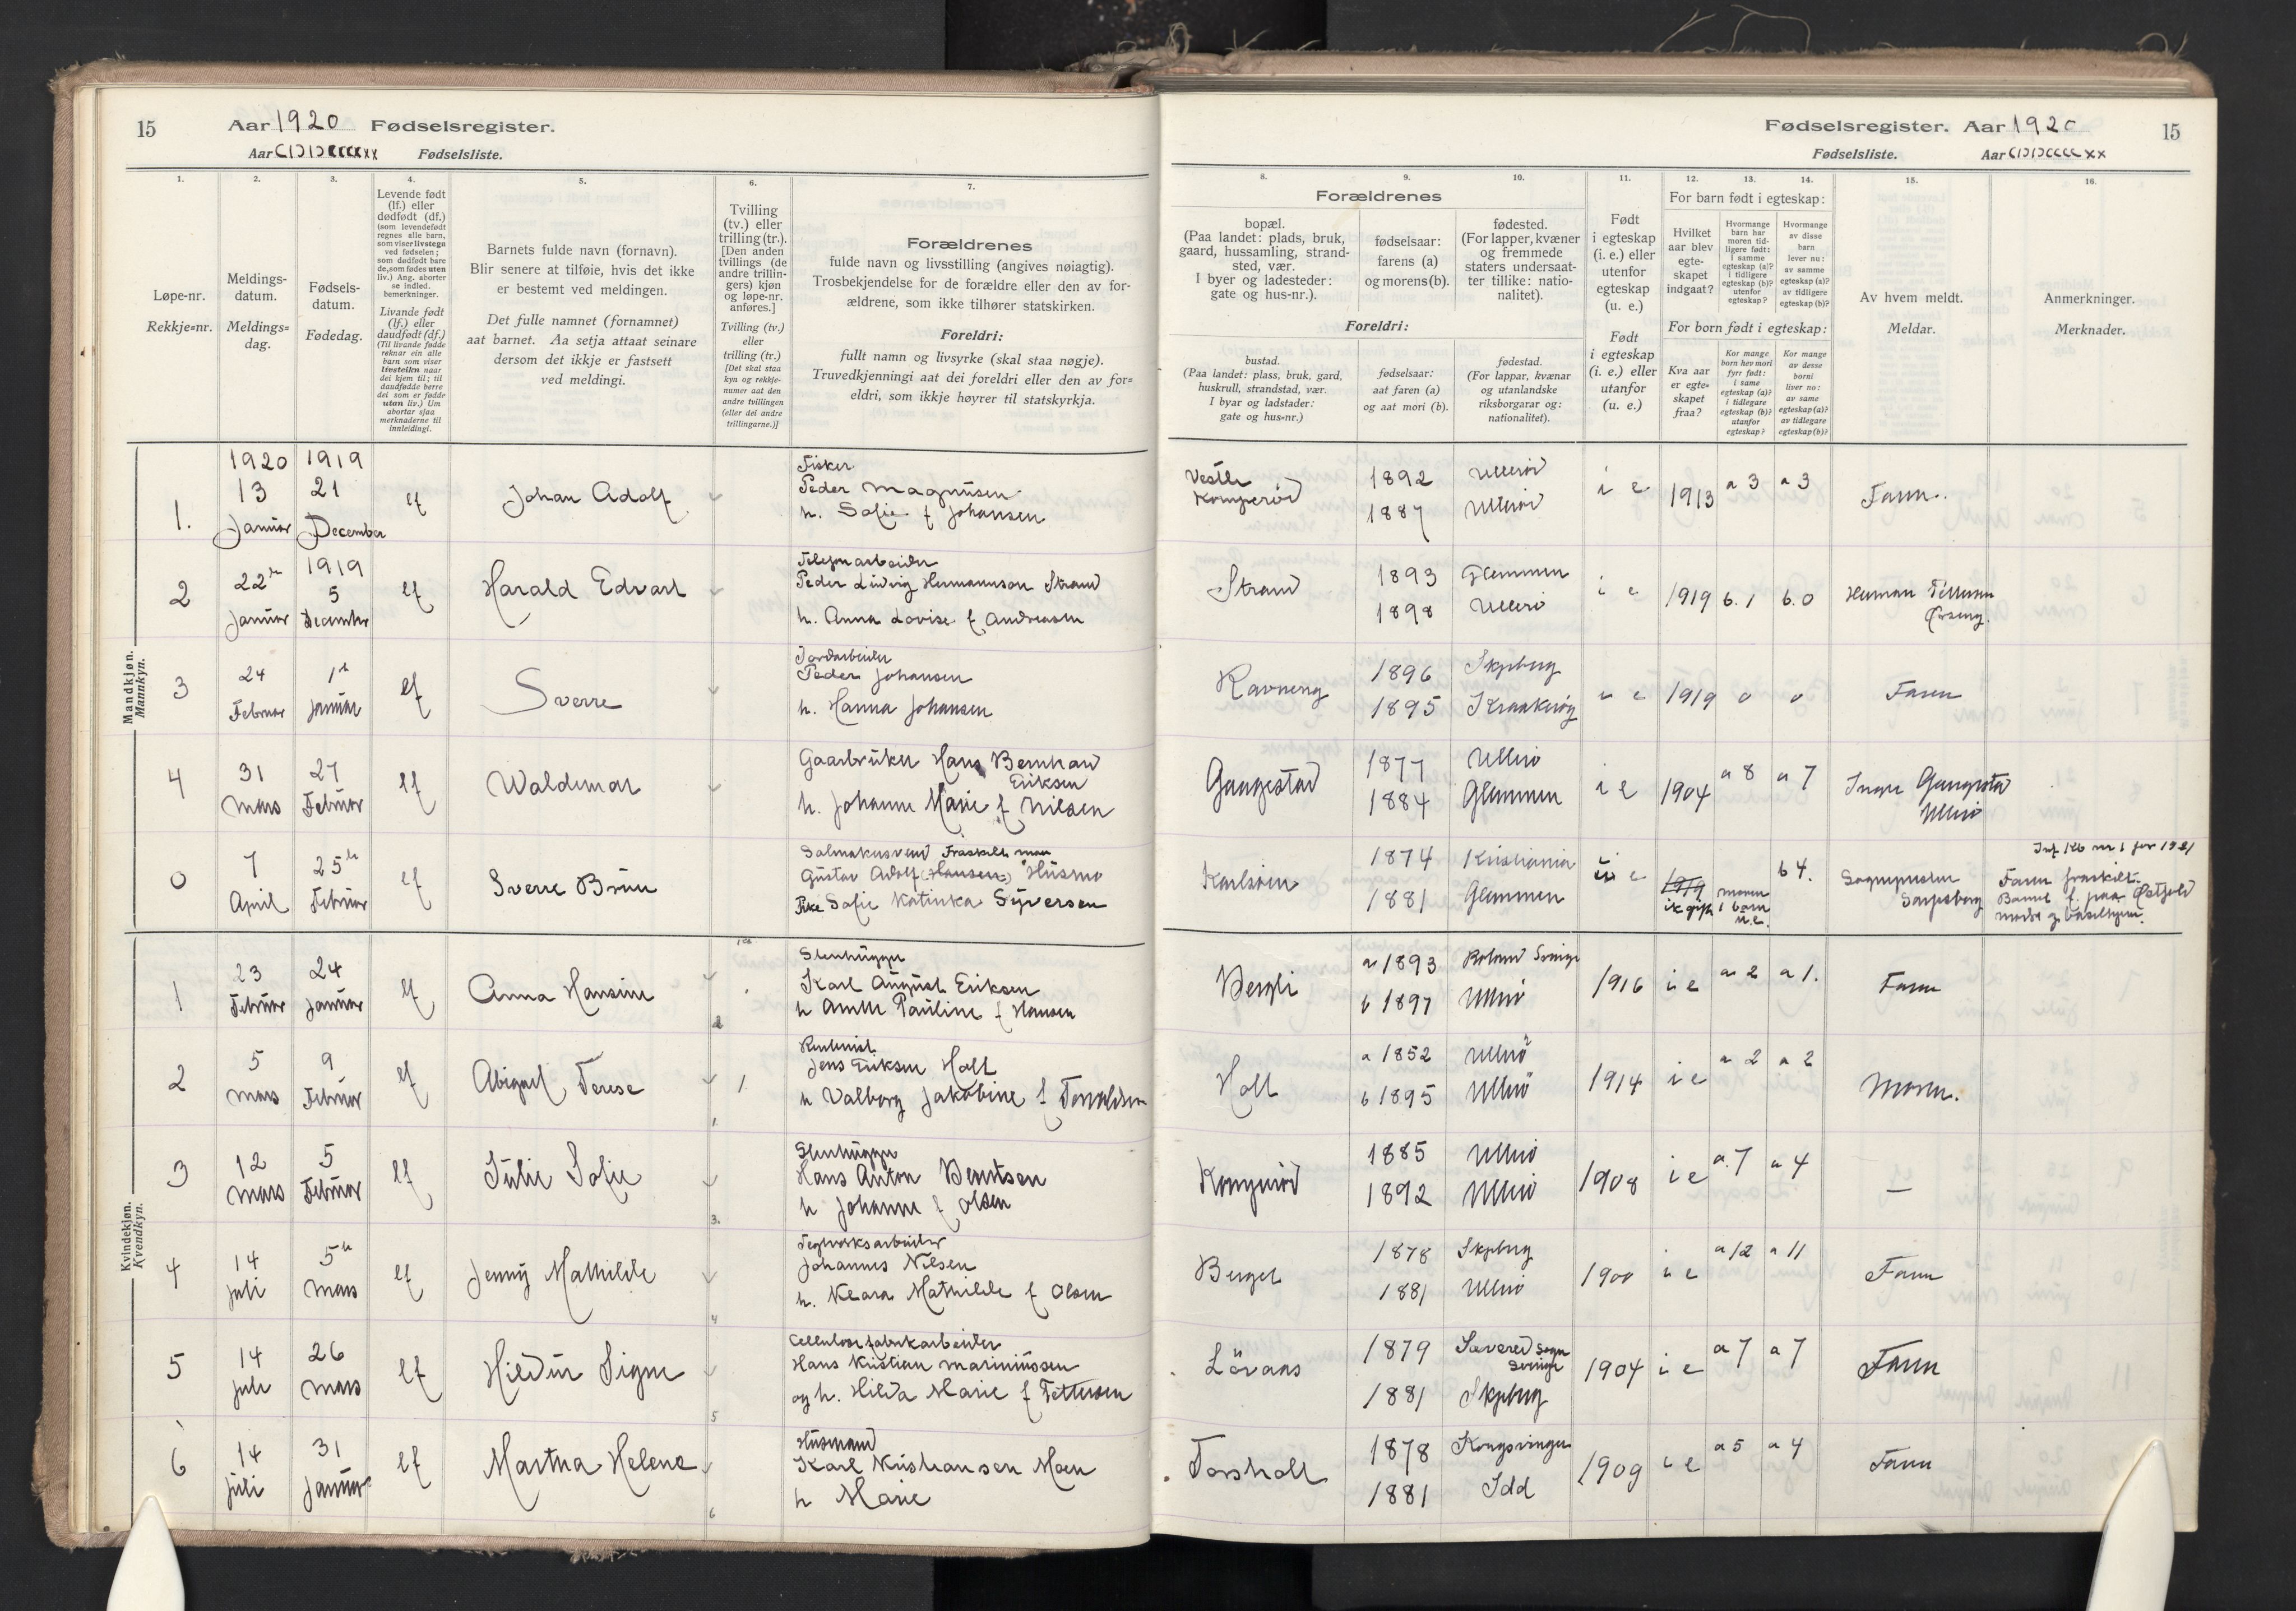 15
Aar 1920 Fødselsregister.
Aar CIƆIƆCCCCXX Fødselsliste.
Fødselsregister. Aar 1920
15
Fødselsliste. Aar CIƆIƆCCCCXX
1.
Løpe-nr.
Rekkje=nr.
2.
Meldings-
datum.
Meldings=
dag.
3.
Fødsels-
datum.
Fødedag.
4.
Levende født
(lf.) eller
dødfødt (df.)
(som levendefødt
regnes alle barn,
som viser livstegn
ved fødselen;
som dødfødt bare
de, som fødes uten
liv.) Ang. aborter
se indled.
bemerkninger.
Livande født
(lf.) eller
daudfødt (df.)
(Til livande fødde
reknar ein alle
barn som viser
livsteikn naar
dei kjem til; til
daudfødde berre
dei som er fødde
utan liv.) Um
abortar sjaa
merknaderne til
innleidingi.
5.
Barnets fulde navn (fornavn).
Blir senere at tilføie, hvis det ikke
er bestemt ved meldingen.
Det fulle namnet (fornamnet)
aat barnet. Aa setja attaat seinare
dersom det ikkje er fastsett
ved meldingi.
6.
Tvilling
(tv.) eller
trilling (tr.).
[Den anden
tvillings (de
andre trillin-
gers) kjøn
og løpe-nr.
anføres.]
Tvilling (tv.)
eller
trilling (tr.)
[Det skal staa
kyn og rekkje-
numer aat den
andre tvillingen
(eller dei andre
trillingarne.)]
7.
Forældrenes
fulde navn og livsstilling (angives nøiagtig).
Trosbekjendelse for de forældre eller den av for-
ældrene, som ikke tilhører statskirken.
Foreldri:
fullt namn og livsyrke (skal staa nøgje).
Truvedkjenningi aat dei foreldri eller den av for=
eldri, som ikkje høyrer til statskyrkja.
Forældrenes
8.
bopæl.
(Paa landet: plads, bruk,
gaard, hussamling, strand-
sted, vær.
I byer og ladesteder:
gate og hus-nr.).
9.
fødselsaar:
farens (a)
og morens (b).
10.
fødested.
(For lapper, kvæner
og fremmede
staters undersaat-
ter tillike: natio-
nalitet).
Foreldri:
bustad.
(Paa landet: plass, bruk, gard,
huskrull, strandstad, vær.
I byar og ladstader:
gate og hus=nr.)
fødselsaar:
aat faren (a)
og aat mori (b).
fødestad.
(For lappar, kvænar
og utanlandske
riksborgarar og:
nationalitet).
11.
Født
i egteskap
(i. e.) eller
utenfor
egteskap
(u. e.)
Født
i egteskap
(i. e.) eller
utanfor
(u. e.)
12. 13. 14.
For barn født i egteskap:
Hvilket
aar blev
egte-
skapet
indgaat?
Hvormange
barn har
moren tid-
ligere født:
i samme
egteskap (a)?
i tidligere
egteskap (b)?
utenfor
egteskap?
Hvormange
av disse
barn
lever nu:
av samme
egteskap (a)?
av tidligere
egteskap (b)?
For born født i egteskap:
Kva aar
er egte=
skapet
fraa?
Kor mange
born hev mori
fyrr født:
i same
egteskap (a)?
i tidlegare
egteskap (b)?
utanfor
egteskap?
Kor mange
av desse
borni
liver no:
av same
egteskap (a)?
av tidlegare
egteskap (b)?
15.
Av hvem meldt.
Meldar.
16.
Anmerkninger.
Merknader.
Mandkjøn.
Mannkyn.
1. 1920 13 Januar 1919 21 December lf Johan Adolf
Fisker
Peder Magnusen
h. Sofie f Johansen
Vestre
1892 Ullerø
1887 Ullerø
i e 1913 a 3 a 3 Faren.
2 22de Januar 1919 5 December lf Harald Edvart
Telefonarbeider
Peder Ludvig Hermannson Strand
h. Anna Lovise f Andreasen
Strand
1893 Glemmen
1898 Ullerø
i e 1919 b. 1 b. 0 Herman
3 24 Februar 1ste Januar lf Sverre
Jordarbeider
Peder Johansen
h. Hanna Johansen
Ravneng
1896 Skjeberg
1895 Kraakerøy
i e 1919 0 0 Faren
4 31 Mars 27 Februar lf Waldemar
Gaarbruker Hans Bernhard
Eriksen
h. Johanne Marie f Nilsen
Gaugestad
1877 Ullerø
1884 Glemmen
i e 1904 a 8 a 7 Ullerø
0 7 April 25de Februar lf Sverre Bruun
Salmakersvend Fraskilt man
Gustav Adolf (Hansen)
Pike Sofie Katinka Syversen
Karlsøen
1874 Kristiania
1881 Glemmen
u e 1919 ik gift moren 1 barn u.e. b 4.
Sognepresten
Sarpsborg
Inf. Kb nr 1 for 1921
Faren fraskilt.
Barnet f. paa Østfold
Kvindekjøn.
Kvendkyn.
1 23 Februar 24 Januar lf Anna Hansine
Stenhugger
Karl August Eriksen
h Pauline f Hansen
Bergli
a 1893
b 1897 Ullerø
1916 i e a 2 a 1. Faren
2 5 Mars 9 Februar lf Abigael Terese 1.
Jens Eriksen Holt
h Valborg Jakobine f
Holt
a 1852 Ullerø
b 1895 Ullerø
1914 i e a 2 a 2 Moren.
3 12 Mars 5 Februar lf Julie Sofie
Stenhugger
Hans Anton Berntsen
h Johanne f Olsen
1885 Ullerø
1892 Ullerø
1908 i e a. 7 a 4 —
4 14 juli 5te Mars lf Jenny Mathilde
Teglverksarbeider
Johannes Nilsen
h. Klara Mathilde f Olsen
Berget
1878 Skjeberg
1881 Ullerø
1900 i e a 12 a 11 Faren
5 14 juli 26 Mars lf Hildur Signe
Cellulosefabrikarbeider
Hans Kristian Mariniussen
og h. Hilda Marie f Pettersen
Löraas
1879 Sogn Sverige
1881 Skjeberg
1904 i e a 7 a 7 Faren
6 14 juli 31 Januar lf Martha Helene
Husmand
Karl Kristiansen Moen
h Marie
Torsholt
1878 Kongsvinger
1881 Idd
1909 i e a 5 a 4 Faren